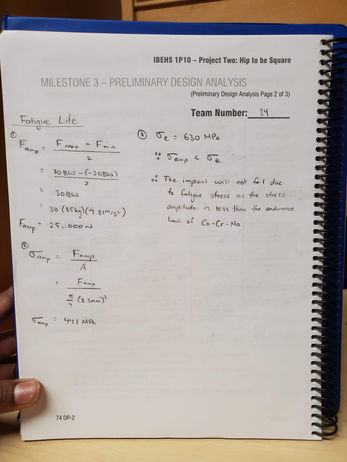 IBEHS 1P10 – Project Two: Hip to be Square
MILESTONE 3 – PRELIMINARY DESIGN ANALYSIS
(Preliminary Design Analysis Page 2 of 3)
Team Number: 14
Fatigue Life
①
F_amp = (F_max - F_min) / 2
= (30BW - (-30BW)) / 2
= 30BW
= 30 (85kg)(9.81m/s²)
F_amp = 25,000W
②
σ_amp = F_amp / A
= F_amp / (π/4 (8.5mm)²)
σ_amp = 441 MPa
③ σ_e = 630 MPa
∵ σ_amp < σ_e
∴ The implant will not fail due
to fatigue stress as the stress
amplitude is less than the endurance
limit of Co-Cr-Mo.
74 DP-2